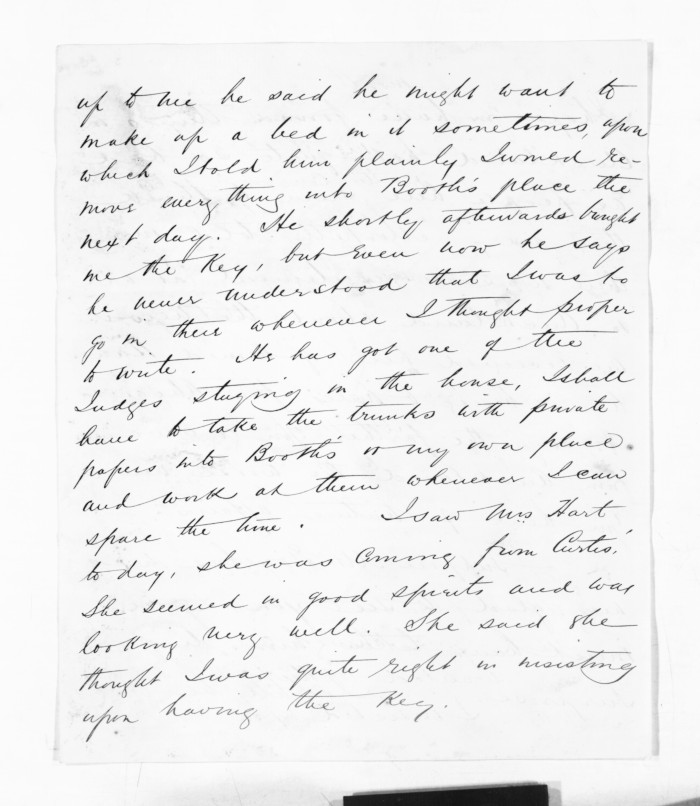 up to me he said he might want to
make up a bed in it sometimes, upon
which I told him plainly I would re-
move everything into Booth's place the
next day. He shortly afterwards brought
me the Key, but even now he says
he never understood that I was to
go in there whenever I thought proper
to write. He has got one of the
Judges staying in the house, I shall
have to take the trunks with private
papers into Booth's or my own place
and work at them whenever I can
spare the time. I saw Mrs Hart
to day, she was coming from Curtis'.
She seemed in good spirits and was
looking very well. She said she
thought I was quite right in insisting
upon having the Key.